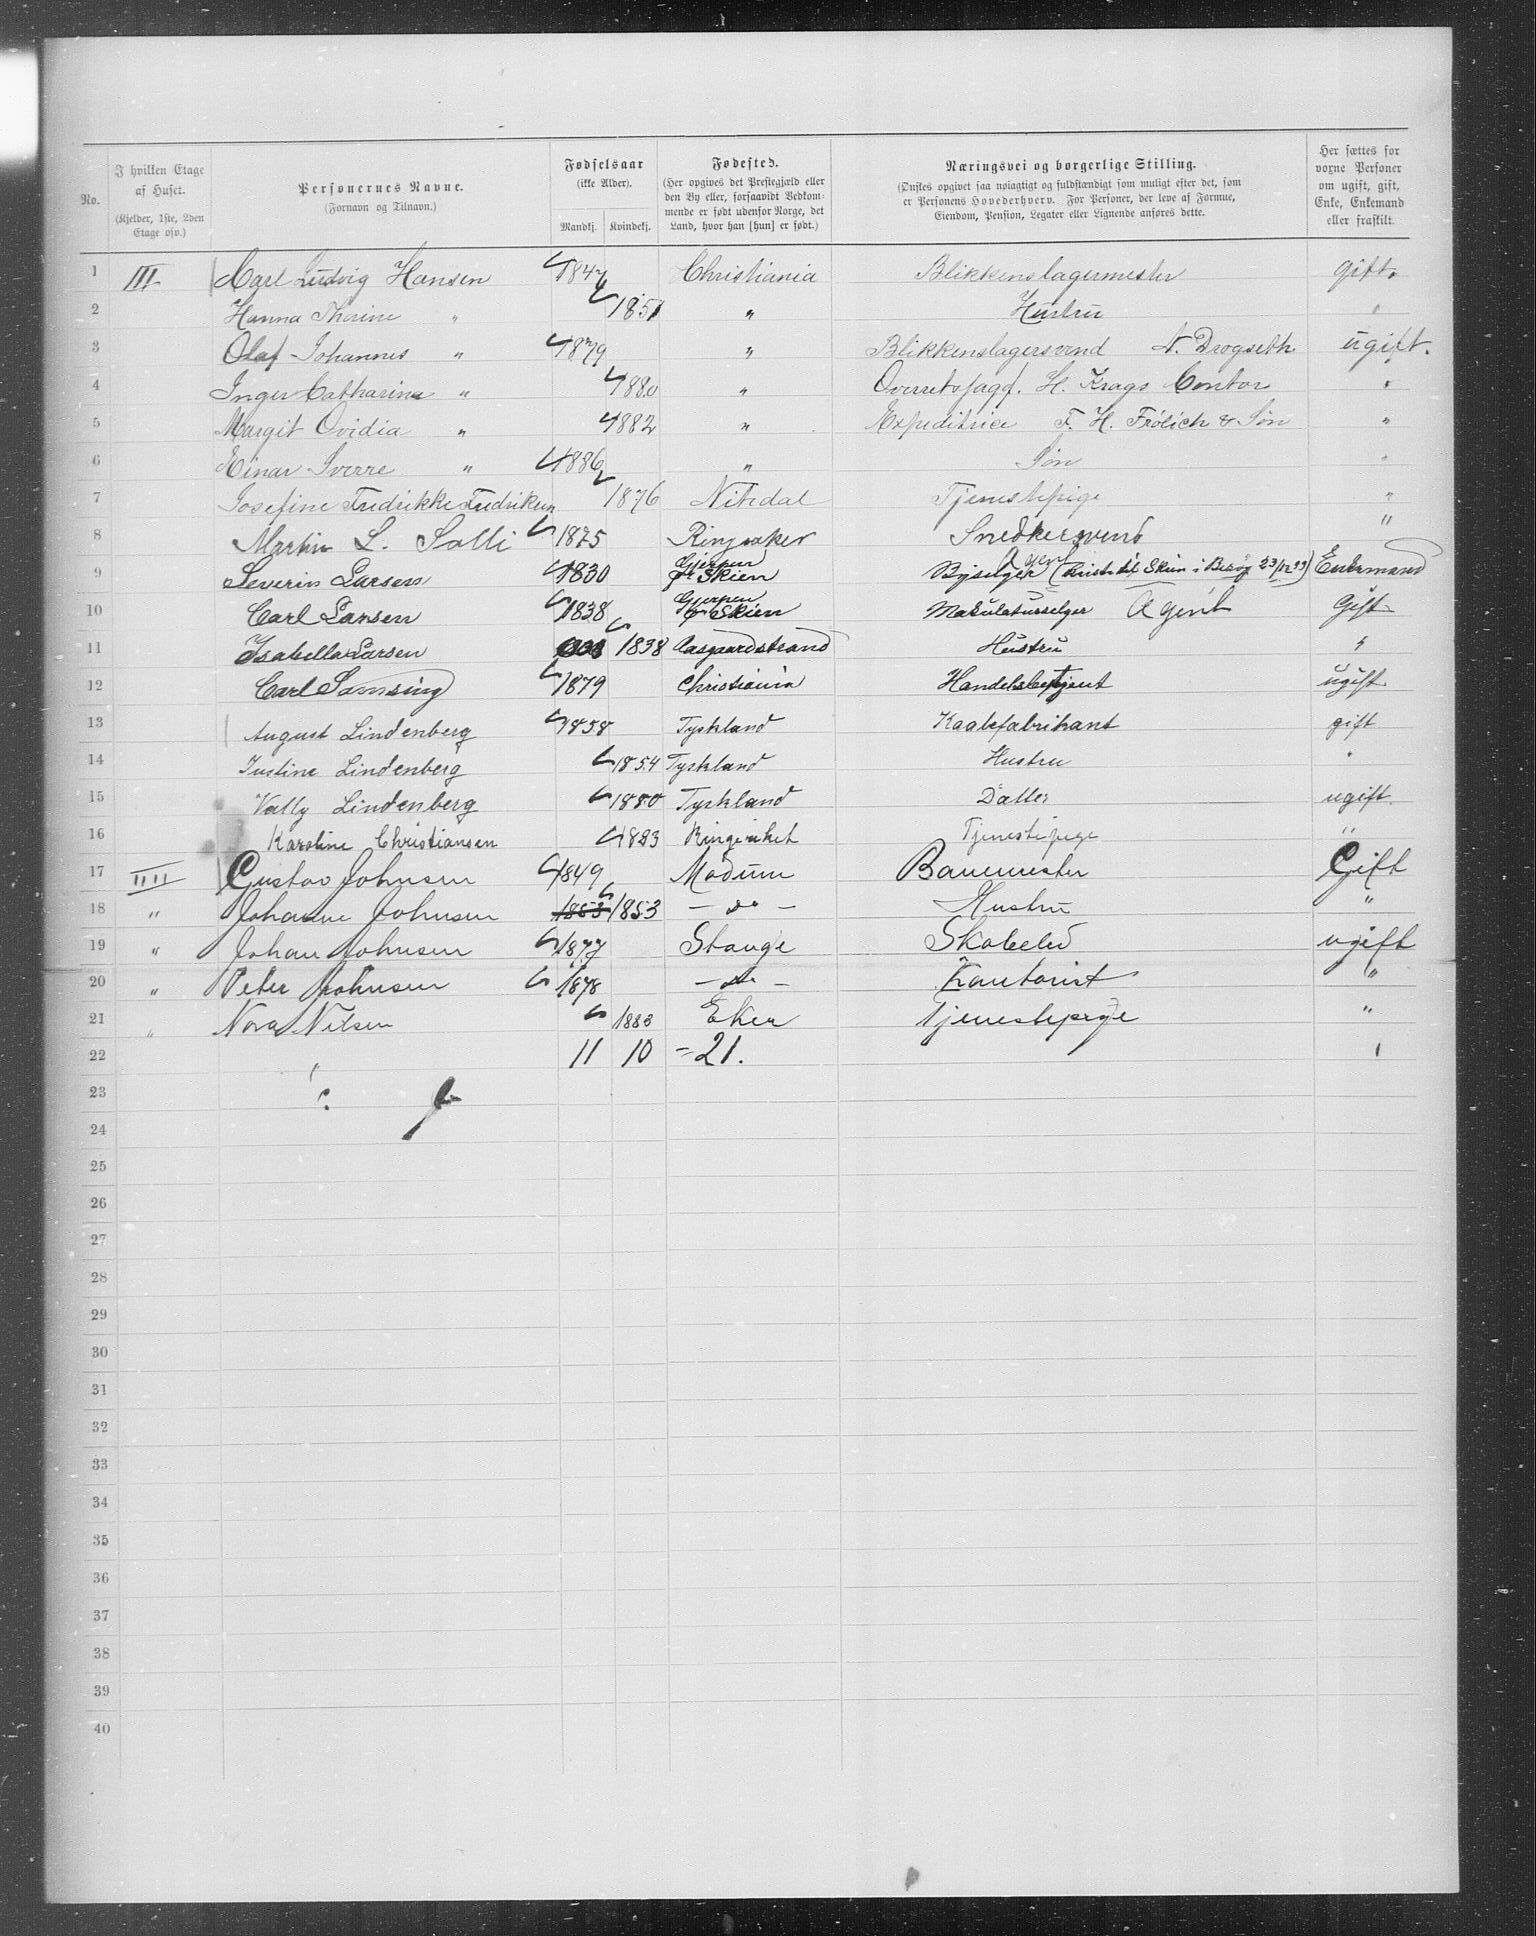 No. I hvilken Etage af Huset. (Kjelder, 1ste, 2den Etage osv.) Personernes Navne. (Fornavn og Tilnavn.) Fødselsaar (ikke Alder). Mandkj. Kvindekj. Fødested. (Her opgives det Prestegjæld eller den By eller, forsaavidt Vedkommende er født udenfor Norge, det Land, hvor han [hun] er født.) Næringsvei og borgerlige Stilling. (Ønskes opgivet saa nøiagtigt og fuldstændigt som muligt efter det, som er Personens Hovederhverv. For Personer, der leve af Formue, Eiendom, Pension, Legater eller Lignende anføres dette. Her sættes for vorne Personer om ugift, gift, Enke, Enkemand eller fraskilt.
1 III. Carl Ludvig Hansen 1847 Christiania Blikkenslagermester gift.
2 Hanna Thorine " 1851 " Hustru "
3 Olaf Johannes " 1879 " Blikkenslagersvend N. Drogseth ugift.
4 Inger Catharina " 1880 " Overretssagf. H. Krags Contor "
5 Margit Ovidia " 1882 " Expeditrice F. H. Frölich & Søn "
6 Einar Sverre " 1886 " Søn "
7 Josefine Fredrikke Fredriksen 1876 Nitedal Tjenestepige "
8 Martin L. Solli 1875 Ringsaker Snedkersvend "
9 Severin Larsen 1830 Gjerpen pr Skien Agent (Reist til Skien i Besøg 23/12 99) Enkemand
10 Carl Larsen 1838 Gjerpen pr Skien Makulatursælger Agent Gift
11 Isabella Larsen 1838 Aasgaardstrand Hustru "
12 Carl Samsing 1879 Christiania Handelsbetjent ugift
13 August Lindenberg 1858 Tyskland Kaalefabrikant gift
14 Justine Lindenberg 1854 Tyskland Hustru "
15 Vally Lindenberg 1880 Tyskland Datter ugift.
16 Karoline Christiansen 1883 Ringeriket Tjenestepige "
17 IIII Gustav Johnsen 1849 Modum Banemester Gift
18 " Johanne Johnsen 1853 1853 - do - Hustru "
19 " Johan Johnsen 1877 Stange Skoleelev ugift
20 " Peter Johnsen 1878 - do - Kontorist "
21 " Nora Nilsen 1883 Eker Tjenestepige "
22 11 10 = 21.
23
24
25
26
27
28
29
30
31
32
33
34
35
36
37
38
39
40